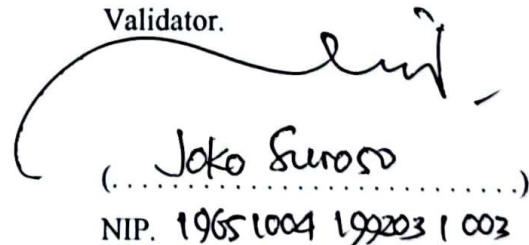 Validator.
(Joko Suroso)
NIP. 19651004 199203 1 003